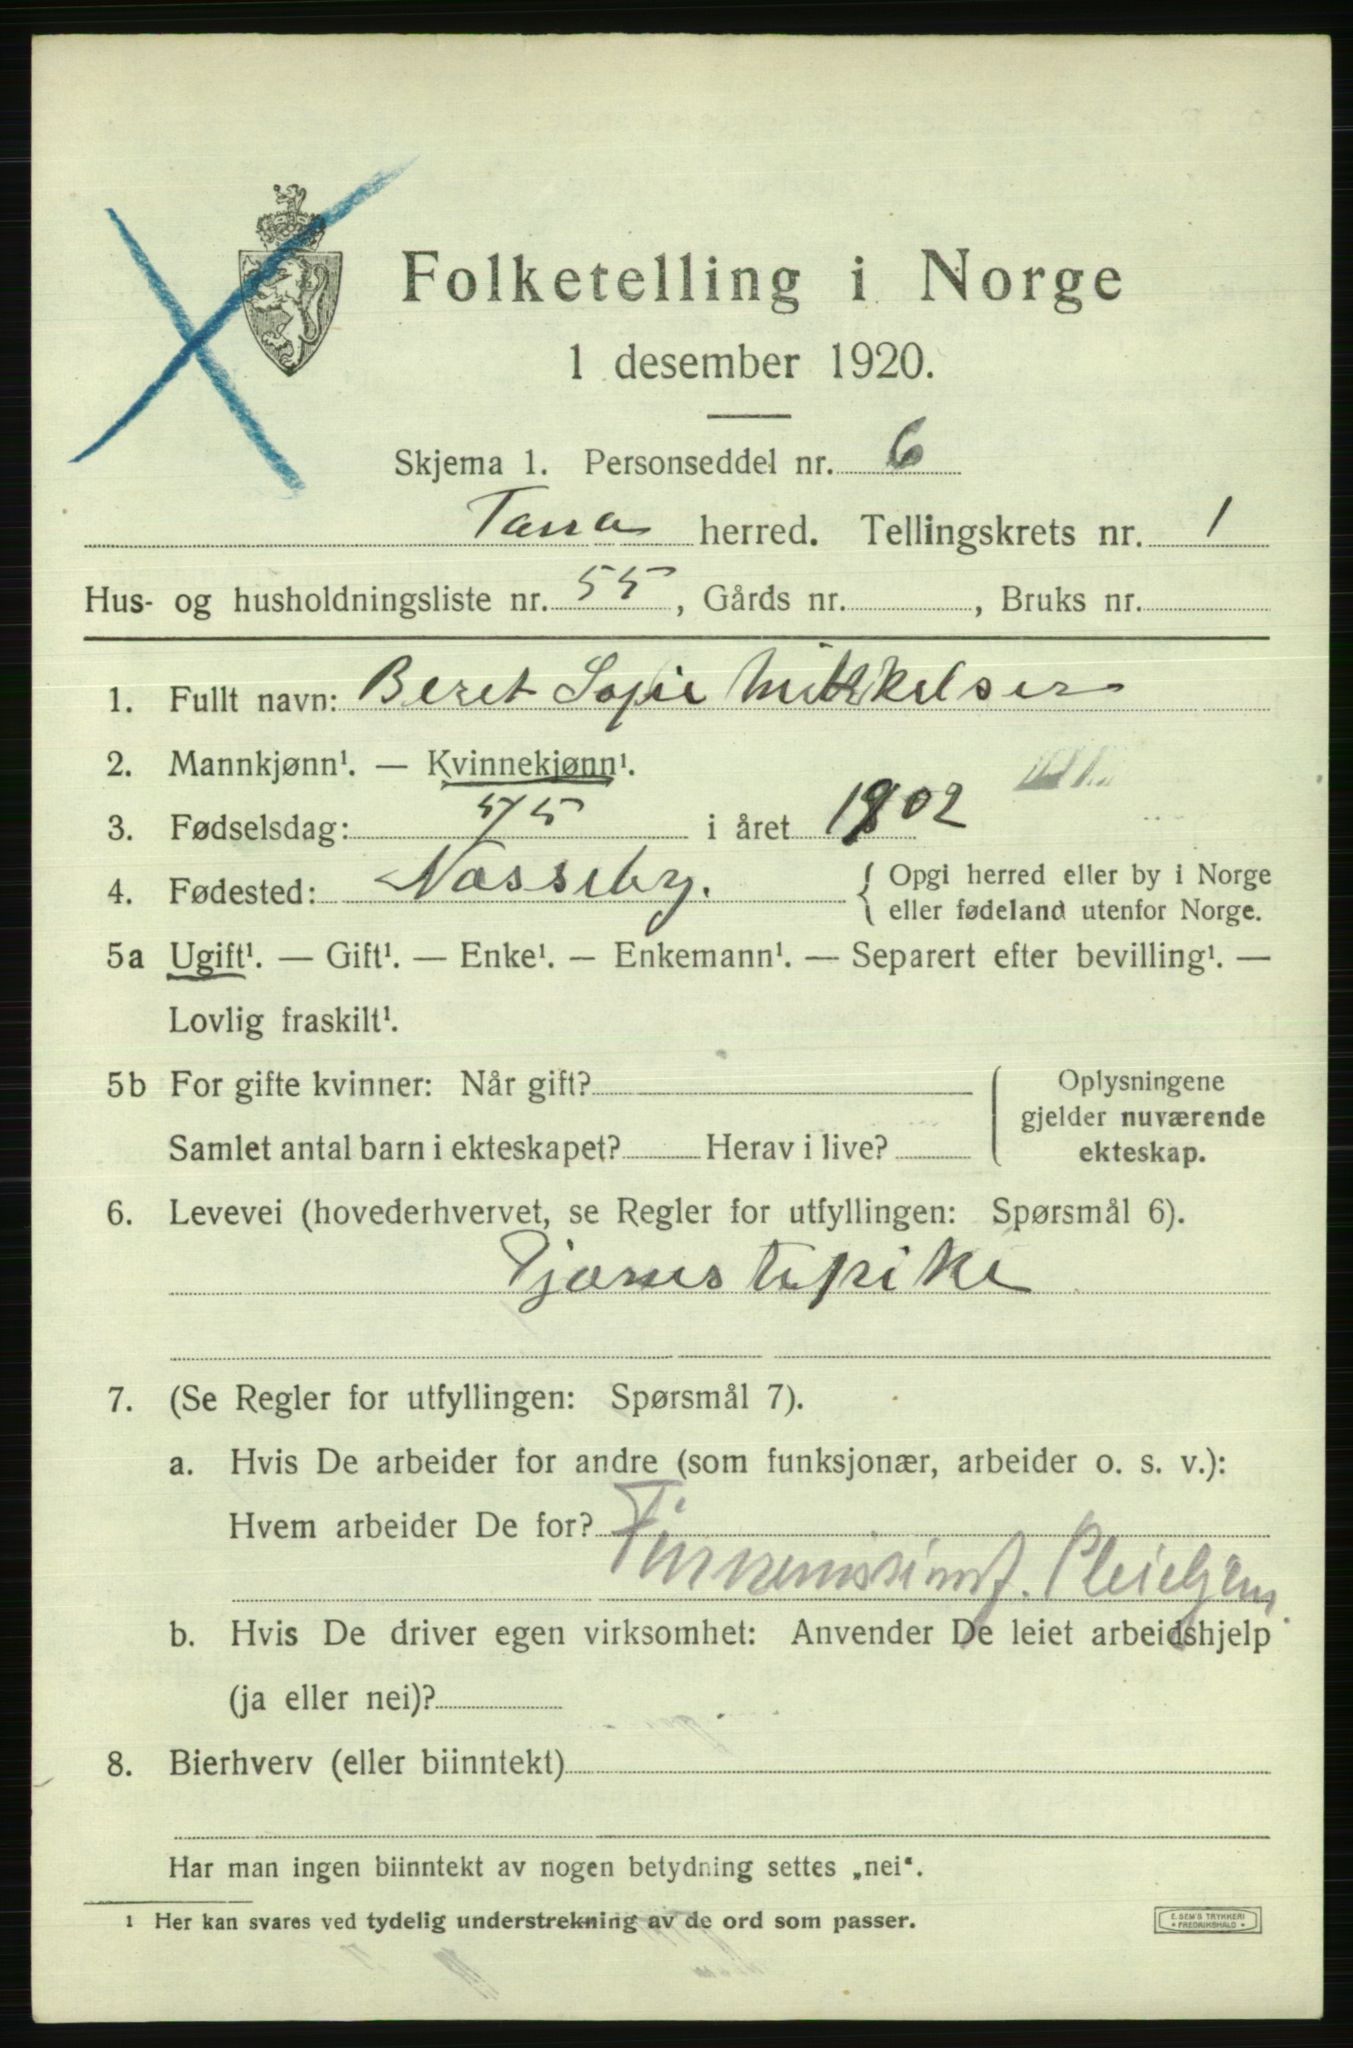 Folketelling i Norge
1 desember 1920.
Skjema 1. Personseddel nr. 6
Tana herred. Tellingskrets nr. 1
Hus- og husholdningsliste nr. 55, Gårds nr. , Bruks nr.
1. Fullt navn: Beret Sofie Mikkelsen
2. Mannkjønn¹. — Kvinnekjønn¹.
3. Fødselsdag: 5/5 i året 1902
4. Fødested: Nesseby. { Opgi herred eller by i Norge
eller fødeland utenfor Norge.
5a Ugift¹. — Gift¹. — Enke¹. — Enkemann¹. — Separert efter bevilling¹. —
Lovlig fraskilt¹.
5b For gifte kvinner: Når gift?
Samlet antal barn i ekteskapet? Herav i live?
Oplysningene
gjelder nuværende
ekteskap.
6. Levevei (hovederhvervet, se Regler for utfyllingen: Spørsmål 6).
Tjenestepike
7. (Se Regler for utfyllingen: Spørsmål 7).
a. Hvis De arbeider for andre (som funksjonær, arbeider o. s. v.):
Hvem arbeider De for?
b. Hvis De driver egen virksomhet: Anvender De leiet arbeidshjelp
(ja eller nei)?
8. Bierhverv (eller biinntekt)
Har man ingen biinntekt av nogen betydning settes „nei“.
¹ Her kan svares ved tydelig understrekning av de ord som passer.
E. SEM'S TRYKKERI
FREDRIKSHALD